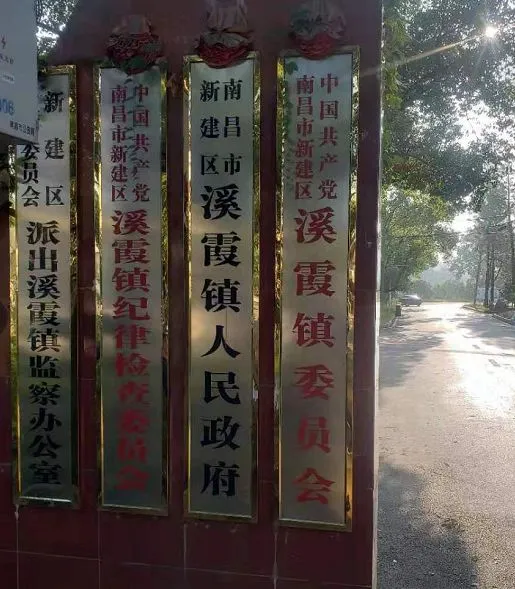 中国共产党
南昌市新建区
溪霞镇委员会
南昌市
新建区
溪霞镇人民政府
中国共产党
南昌市新建区
溪霞镇纪律检查委员会
新建区
委员会
派出溪霞镇监察办公室